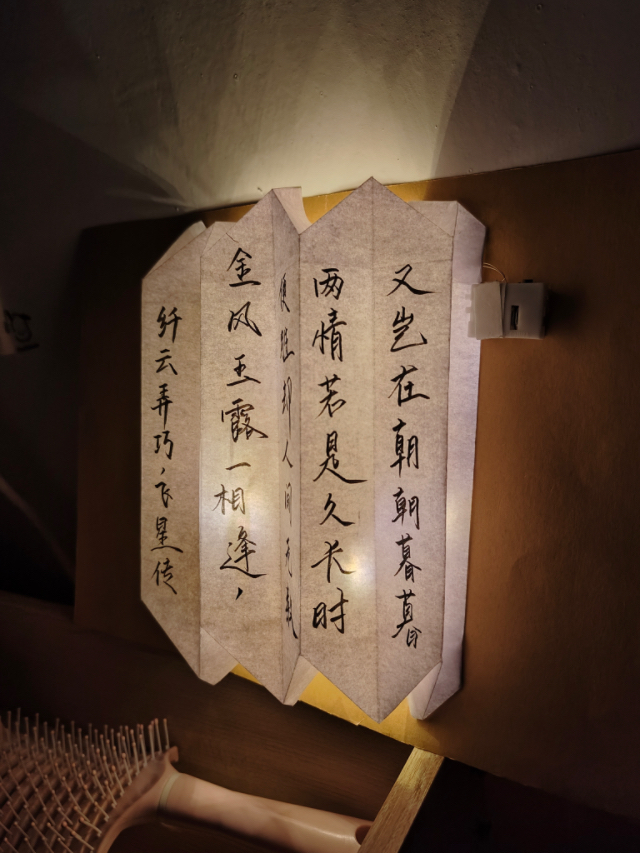 纤云弄巧，飞星传
金风玉露一相逢，
便胜却人间无数
两情若是久长时
又岂在朝朝暮暮